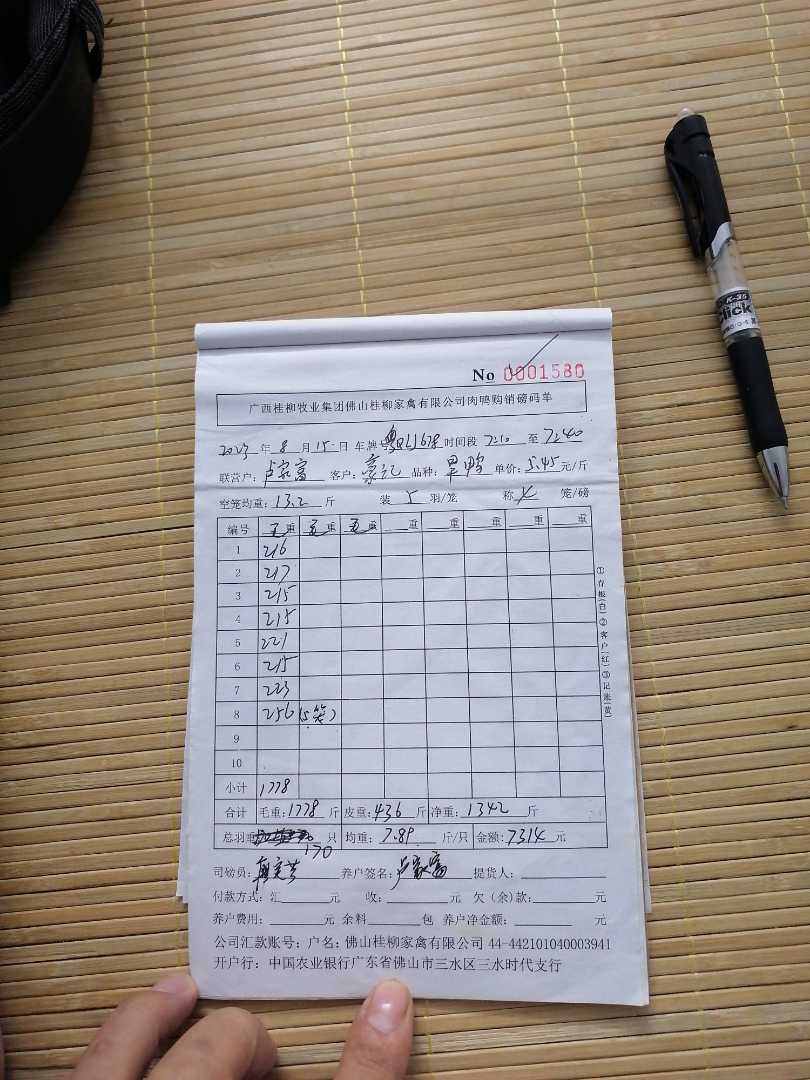 K-35
Click
No 0001580
广西桂柳牧业集团佛山桂柳家禽有限公司肉鸭购销磅码单
2023 年 8 月 15 日 车牌号 时间段 7:10 至 7:40
联营户：卢家富 客户：豪记 品种：旱鸭 单价：5.45 元/斤
空笼均重：13.2 斤 装 5 羽/笼 称 4 笼/磅
编号 毛重 毛重 毛重 重 重 重 重 重
1 216
2 217
3 215
4 215
5 221
6 215
7 223
8 256 (5笼)
9
10
小计 1778
合计 毛重：1778 斤 皮重：436 斤 净重：1342 斤
总羽重 170 只 均重：7.89 斤/只 金额：7314 元
司磅员： 养户签名：卢家富 提货人：
付款方式：汇 元 收： 元 欠（余）款： 元
养户费用： 元 余料 包 养户净金额： 元
公司汇款账号：户名：佛山桂柳家禽有限公司 44-442101040003941
开户行：中国农业银行广东省佛山市三水区三水时代支行
①存根(白)②客户(红)③记账(黄)